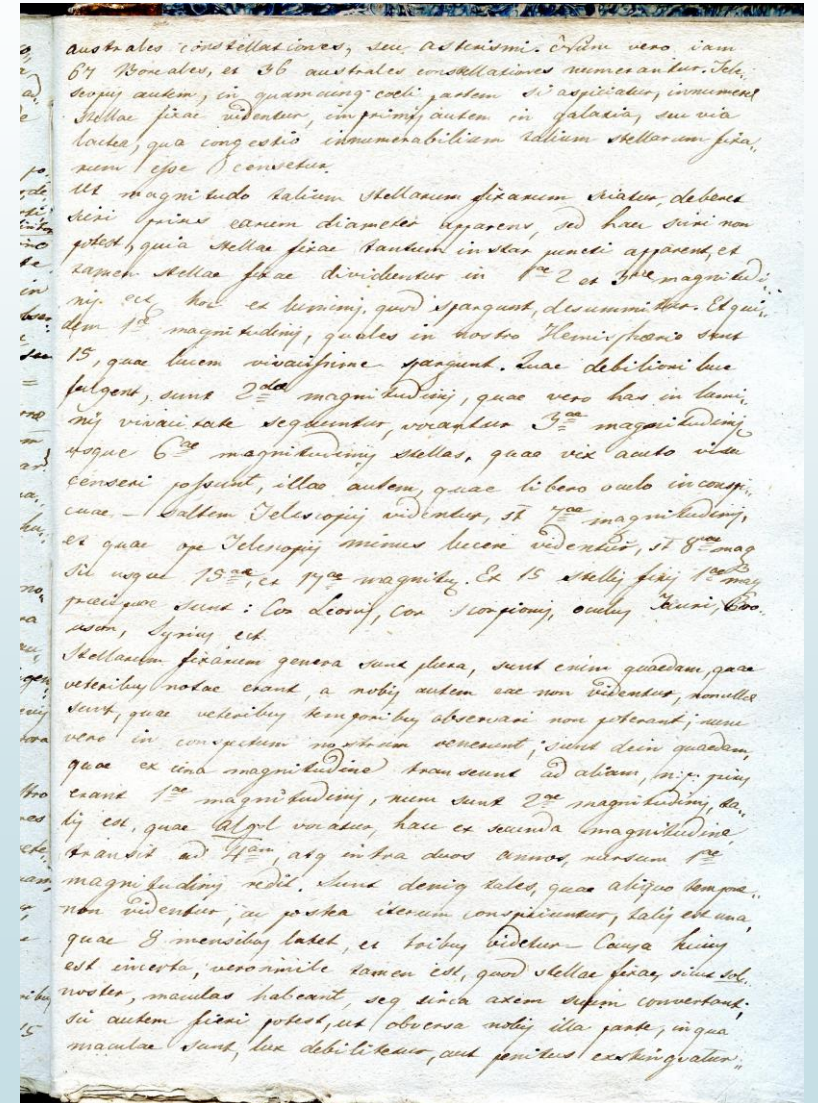 australes constellationes, seu asterismi. Nunc vero iam
67 Boreales, et 36 australes constellationes numerantur. Tele„
scopiis autem, in quamcunq coeli partem si aspiciatur, innumerae
Stellae fixae videntur, imprimis autem in galaxia, seu via
lactea, qua congestio innumerabilium talium stellarum fixa„
rum esse censetur.
Ut magnitudo talium stellarum fixarum sciatur, deberet
sciri prius earum diameter apparens, sed haec sciri non
potest, quia stellae fixae tantum instar puncti apparent, et
tamen stellae fixae dividuntur in 1ae 2 et 3ae magnitudi„
nis ect hoc ex luminis, quod spargunt, desummitur. Et qui„
dem 1ae magnitudinis, quales in nostro Hemisphaerio sunt
15, quae lucem vivacissime spargunt. Quae debiliori luce
fulgent, sunt 2dae magnitudinis, quae vero has in lumi„
nis vivacitate sequuntur, vocantur 3ae magnitudinis
usque 6ae magnitudinis stellas, quae vix acuto visu
censeri possunt, illae autem, quae libero oculo inconspi„
cuae – saltem Telescopiis videntur, st 7ae magnitudinis,
et quae ope Telescopiis minus lucere videntur, st 8vae mag
sic usque 15ae, et 17ae magnitu. Ex 15 stellis fixis 1ae mag
praecipuae sunt: Cor Leonis, cor scorpionis, oculus Tauri,
Syrius ect
Stellarum fixarum genera sunt plura, sunt enim quaedam, quae
veteribus notae erant, a nobis autem eae non videntur, nonnullae
sunt, quae veteribus temporibus observari non poterant; nunc
vero in conspectum nostrum venerunt; sunt dein quaedam,
quae ex una magnitudine transeunt ad aliam, prius
erant 1ae magnitudinis, nunc sunt 2ae magnitudinis, ta„
lis est, quae Algol vocatur, haec ex secunda magnitudine
transit ad 4am, atq intra duos annos, rursum 1ae
magnitudinis redit. Sunt deniq tales, quae aliquo tempore„
non videntur, ac postea iterum conspiciuntur, talis est una,
quae 8 mensibus latet, et tribus videtur Causa huius
est incerta, verosimile tamen est, quod stellae fixae, sicut sol„
noster, maculas habeant, seq circa axem suum convertant;
sic autem fieri potest, ut obversa nobis illa parte, in qua
maculae sunt, lux debilitetur, aut penitus exstinguatur„